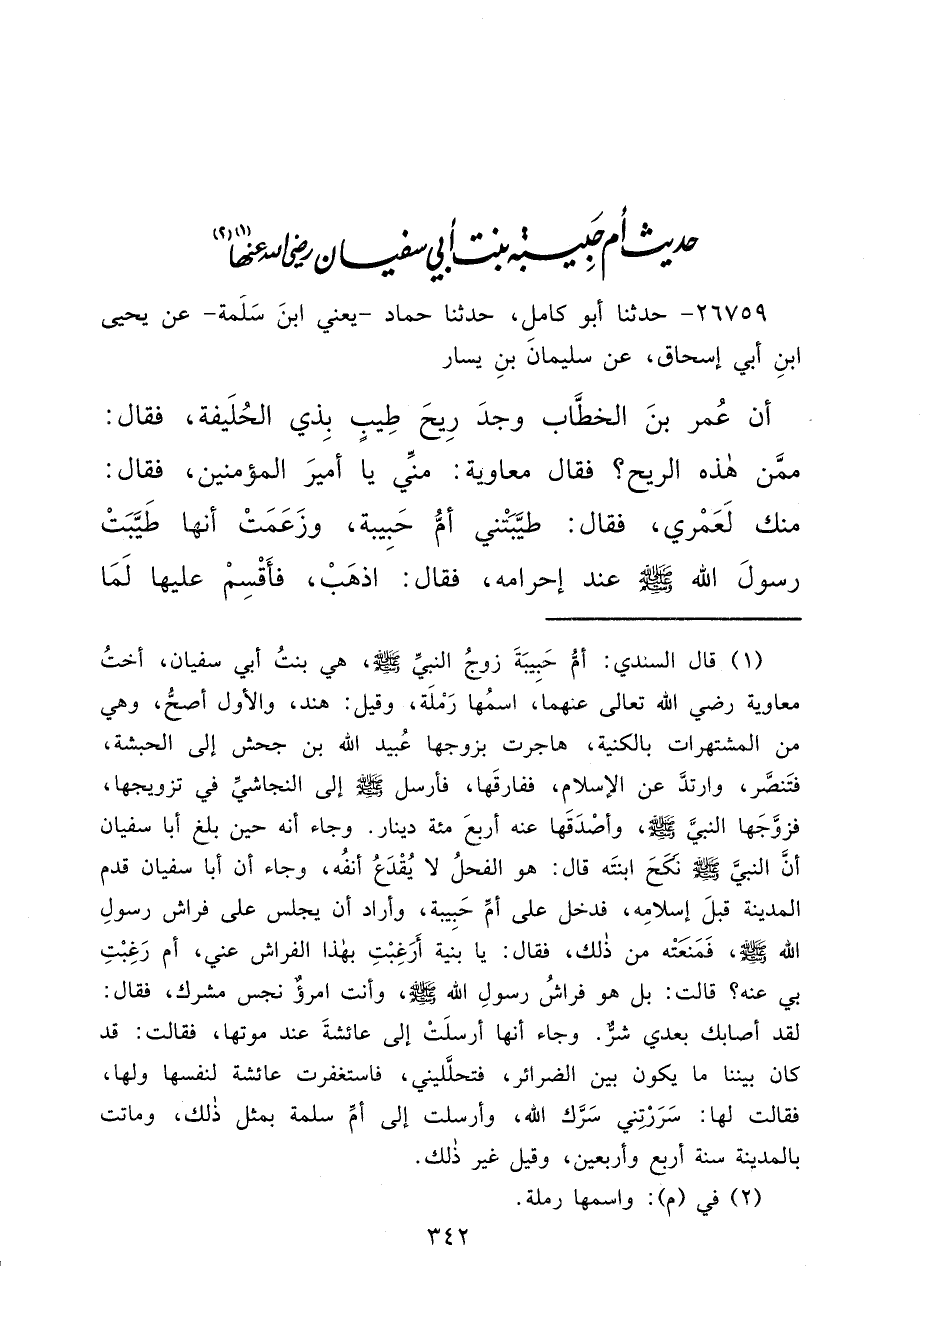 حديث أم حَبِيبة بنت أبي سفيان رضي الله عنها(١)(٢)
٢٦٧٥٩- حدثنا أبو كامل، حدثنا حماد -يعني ابنَ سَلَمة- عن يحيى
ابنِ أبي إسحاق، عن سليمانَ بنِ يسار
أن عُمر بنَ الخطَّاب وجدَ رِيحَ طِيبٍ بِذي الحُلَيفة، فقال:
ممَّن هٰذه الريح؟ فقال معاوية: منِّي يا أميرَ المؤمنين، فقال:
منك لَعَمْري، فقال: طيَّبَتْني أمُّ حَبِيبة، وزَعَمَتْ أنها طَيَّبَتْ
رسولَ الله ﷺ عند إحرامه، فقال: اذهَبْ، فأَقْسِمْ عليها لَمَا
(١) قال السندي: أمُّ حَبِيبَةَ زوجُ النبيِّ ﷺ، هي بنتُ أبي سفيان، أختُ
معاوية رضي الله تعالى عنهما، اسمُها رَمْلَة، وقيل: هند، والأول أصحُّ، وهي
من المشتهرات بالكنية، هاجرت بزوجها عُبيد الله بن جحش إلى الحبشة،
فتَنصَّر، وارتدَّ عن الإسلام، ففارقَها، فأرسل ﷺ إلى النجاشيِّ في تزويجها،
فزوَّجَها النبيَّ ﷺ، وأصْدَقَها عنه أربعَ مئة دينار. وجاء أنه حين بلغ أبا سفيان
أنَّ النبيَّ ﷺ نَكَحَ ابنتَه قال: هو الفحلُ لا يُقْدَعُ أنفُه، وجاء أن أبا سفيان قدم
المدينة قبلَ إسلامِه، فدخل على أمِّ حَبِيبة، وأراد أن يجلس على فراش رسولِ
الله ﷺ، فَمَنَعَتْه من ذٰلك، فقال: يا بنية أَرَغِبْتِ بهٰذا الفراش عني، أم رَغِبْتِ
بي عنه؟ قالت: بل هو فراشُ رسولِ الله ﷺ، وأنت امرؤٌ نجس مشرك، فقال:
لقد أصابك بعدي شرٌّ. وجاء أنها أرسلَتْ إلى عائشةَ عند موتها، فقالت: قد
كان بيننا ما يكون بين الضرائر، فتحلَّليني، فاستغفرت عائشة لنفسها ولها،
فقالت لها: سَرَرْتِني سَرَّك الله، وأرسلت إلى أمِّ سلمة بمثل ذٰلك، وماتت
بالمدينة سنة أربع وأربعين، وقيل غير ذٰلك.
(٢) في (م): واسمها رملة.
٣٤٢